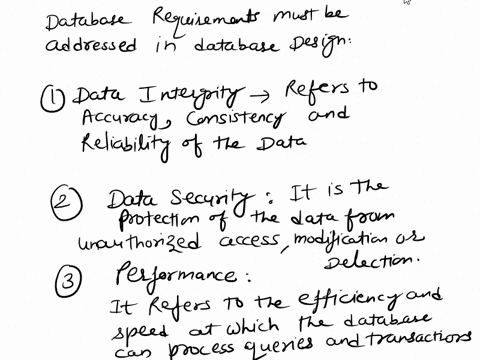 Database Requirements must be
addressed in database Design:
① Data Intergrity → Refers to
Accuracy, Consistency and
Reliability of the Data
② Data Security: It is the
Protection of the data from
unauthorized access, modification or
Delection.
③ Performance:
It Refers to the efficiency and
speed at which the database
can process queries and transactions